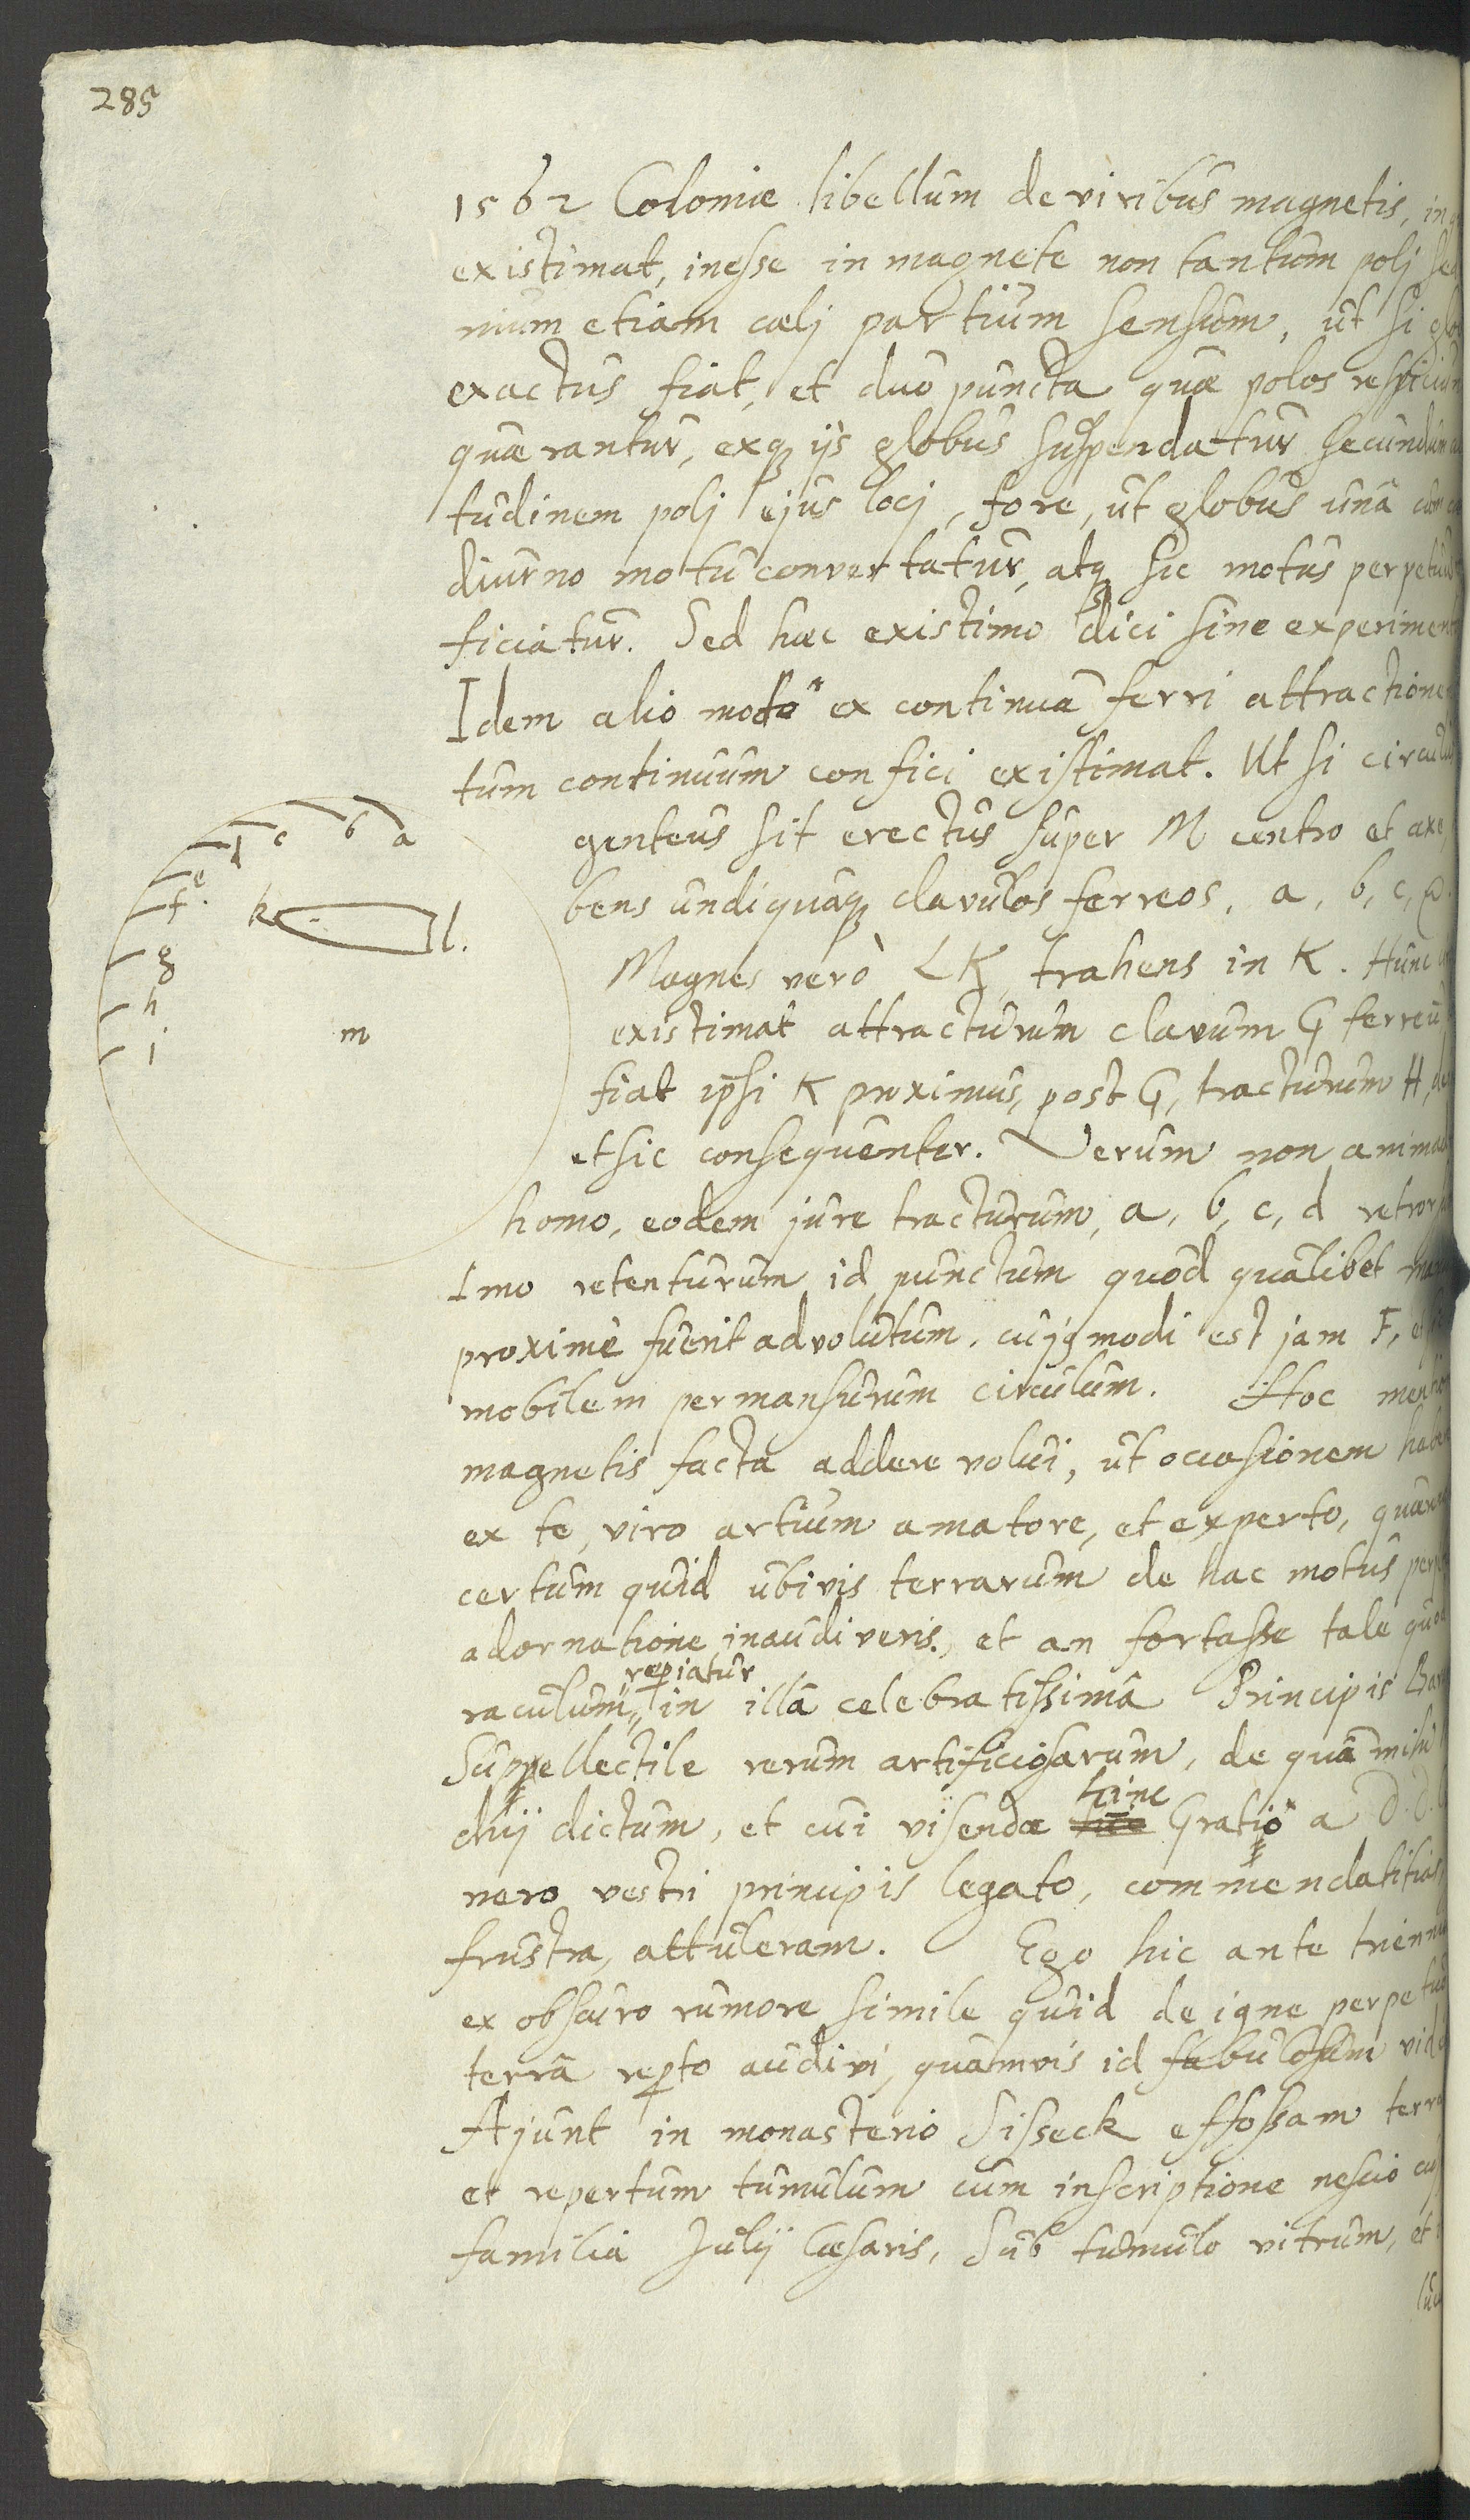 285
1562 Coloniæ libellum de viribus magnetis, in
existimat, inesse in magnete non tantum polj sed
nium etiam cælj partium sensum, ut si glo
exactus fiat, et duo puncta quæ polos respiciun
quærantur, exq ijs globus suspendatur secundum
tudinem polj ejus locj, fore, ut globus unâ cum
diurno motu convertatur, atq sic motus perpetuus
ficiatur. Sed hæc existimo dici sine experiment
Idem alio modo ex continuâ ferri attractione
tum continuum confici existimat. Ut si circulu
genteus sit erectus super M centro et axe,
bens undiquaq clavulos ferreos, a, b, c,
Magnes verò LK, trahens in K. Hunc
existimat attracturum clavum G ferreū
fiat ipsi K proximus, post G, tracturum H,
et sic consequenter. Verum non animad
homo, eodem jure tracturum, a, b, c, d retrorsu
Imo retenturum id punctum quod quâlibet
proximè fuerit advolutum, cujsmodi est jam F, et
mobilem permansurum circulum. Hoc mentio
magnetis facta addere volui, ut occasionem habe
ex te, viro artium amatore, et experto, quære
certum quid ubivis terrarum de hac motus perp
adornatione inaudiveris, et an fortasse tale quod
raculum reperiatur in illâ celebratissimâ Principis Bava
Suppellectile rerum artificiosarum, de quâ
dhij dictum, et cui visendæ huc hinc Gratio a D. D.
nero vestri principis legato, commendatitias
frustra, attuleram. Ego hic ante trienni
ex obscuro rumore simile quid de igne perpetuo
terrâ repto audivi, quamvis id fabulosum vid
Ajunt in monasterio Sisseck effossam terra
et repertum tumulum cum inscriptione nescio cuj
familia Julij Cæsaris, Sub tumulo vitrum, et
luc
a
b
c
d
e
f.
g
h
i
k
l.
m